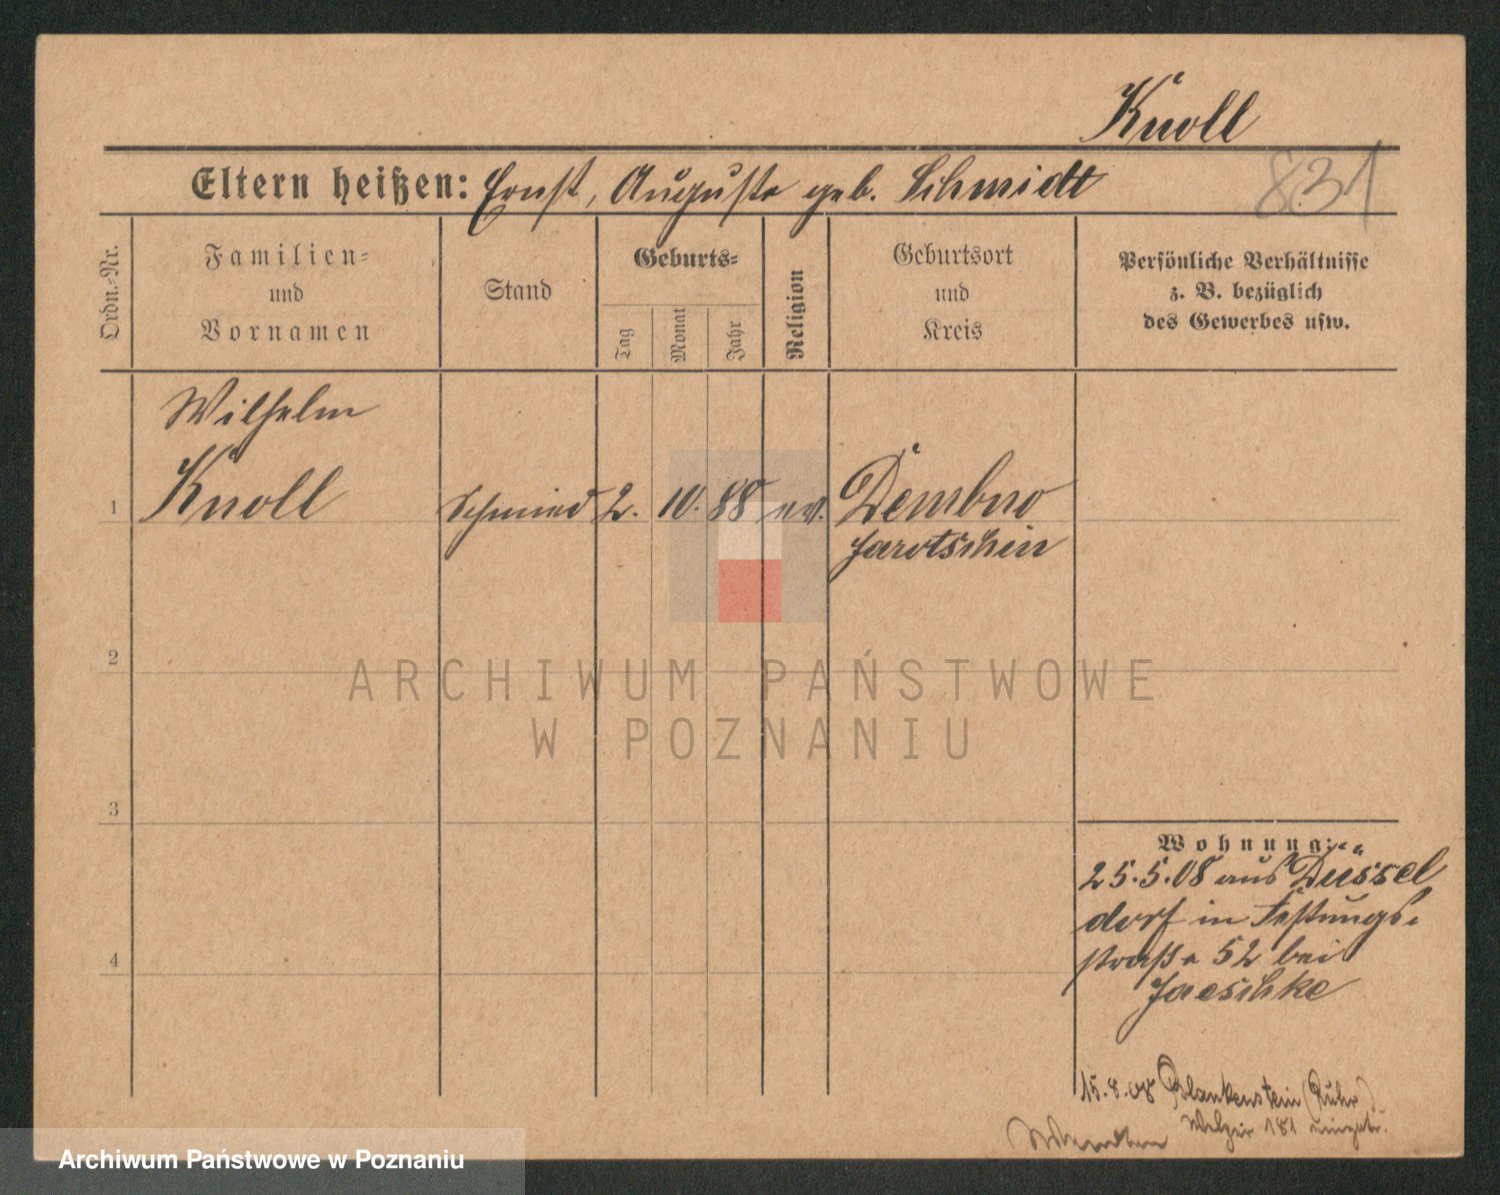 Knoll
Eltern heißen: Ernst, Auguste geb. Schmidt
831
Ordn.-Nr.
Familien- und Vornamen
Stand
Geburts-
Tag
Monat
Jahr
Religion
Geburtsort und Kreis
Persönliche Verhältnisse
z. B. bezüglich
des Gewerbes usw.
Wilhelm
1 Knoll Schmied 2. 10. 88 ev. Dembno
Jarotschin
2
ARCHIWUM PAŃSTWOWE
W POZNANIU
3
Wohnung:
25.5.08 aus Düssel
dorf in Festungs-
straße 52 bei
4
Jaeschke
15.8.08 Blankenstein (Ruhr)
181
Archiwum Państwowe w Poznaniu